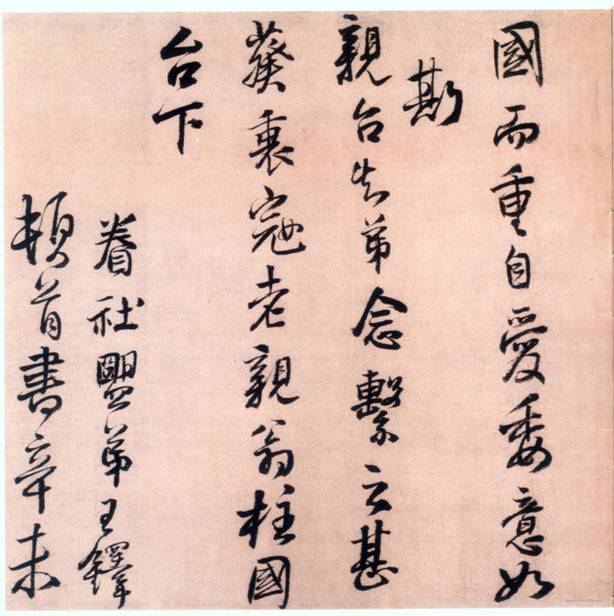 國而重自愛委意如
斯
親台知弟念繫之甚
葵衷寇老親翁柱國
台下
眷社盟弟王鐸
頓首書辛未